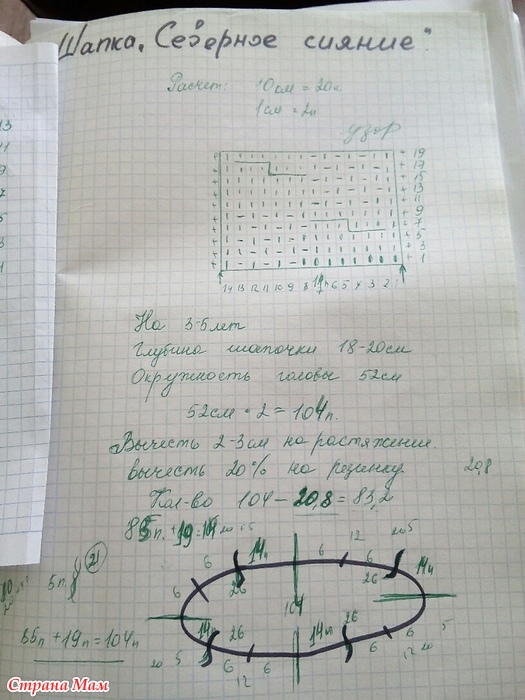 Шапка „Северное сияние".
Расчет: 10см = 20п
1см = 2п
узор
+ 19
+ 17
+ 15
+ 13
+ 11
+ 9
+ 7
+ 5
+ 3
+ 1
14 13 12 11 10 9 8 7 6 5 4 3 2 1
На 3-5 лет
Глубина шапочки 18-20см
Окружность головы 52см
52см · 2 = 104п.
Вычесть 2-3см на растяжение.
вычесть 20% на резинку 20,8
Кол-во 104 - 20,8 = 83,2
85п. + 19 = 104
5п. 21
85п + 19п = 104п
14п 6 12 6 20 5
6 6 26 26 14п
104
14п 26 14п 26
20 5 6 6 6 6 12 20 5
Страна Мам